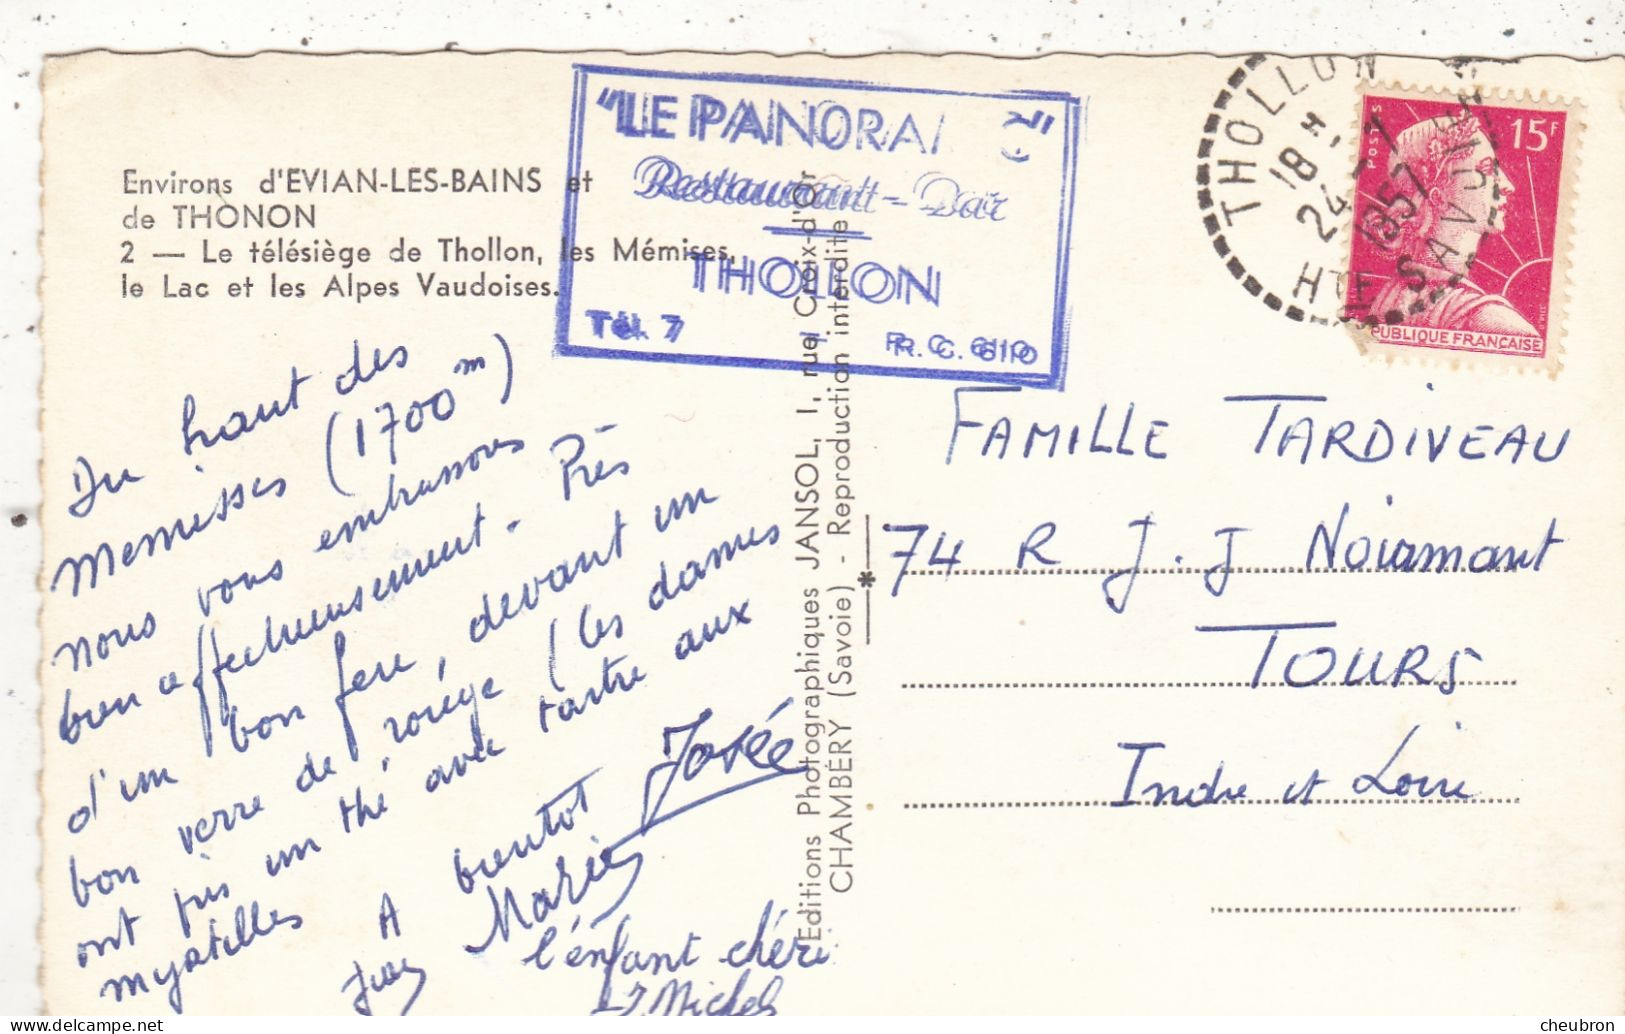 Environs d'EVIAN-LES-BAINS et
de THONON
2 — Le télésiège de Thollon, les Mémises,
le Lac et les Alpes Vaudoises.
"LE PANORA
Restaurant - Bar
THOLLON
Tél. 7 R. C. 610
THOLLON
18 H
24 - 7
1957
HTE SAVOIE
POSTES
15F
REPUBLIQUE FRANÇAISE
Du haut des
Memisses (1700 m)
nous vous embrassons
bien affectueusement. Près
d'un bon feu, devant un
bon verre de rouge (les dames
ont pris un thé avec tartre aux
myrtilles
A bientot
José
Marie
l'enfant chéri
Michel
Editions Photographiques JANSOL, 1, rue Croix-d'Or
CHAMBÉRY (Savoie) - Reproduction interdite
FAMILLE TARDIVEAU
74 R J. J Noiramant
TOURS
Indre et Loire
cheubron
delcampe.net